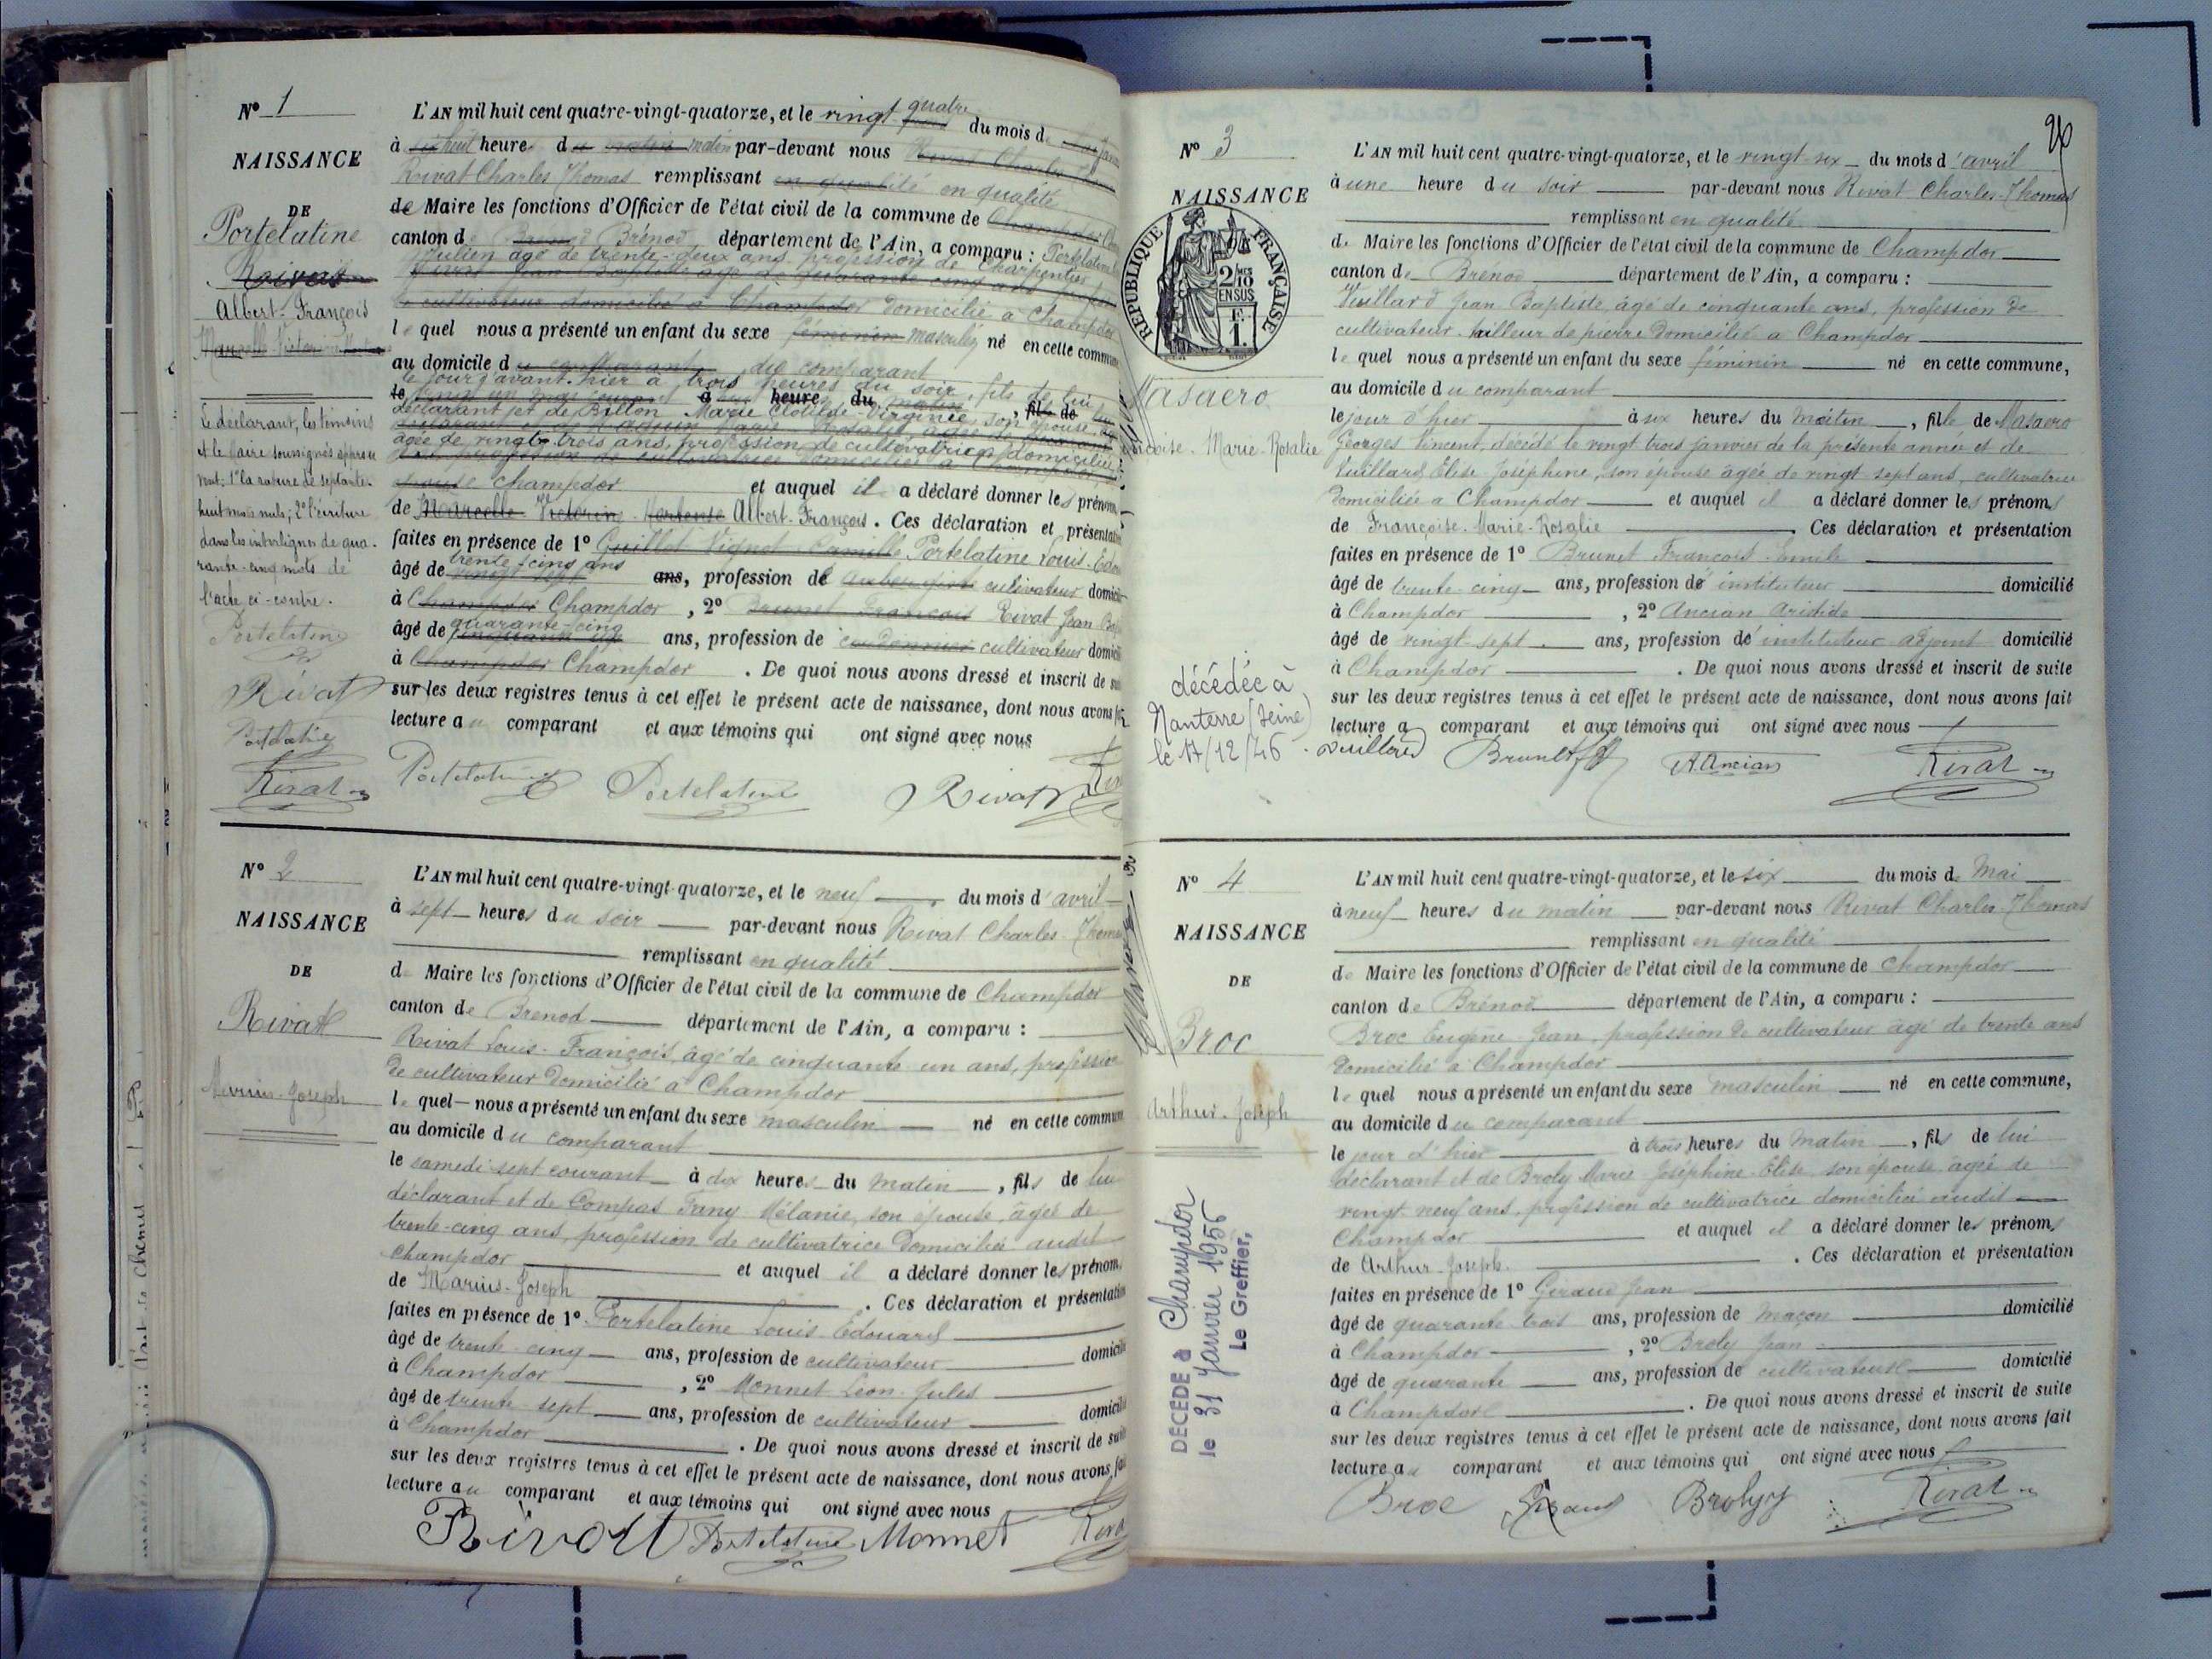 N° 1
NAISSANCE
DE
Portelatine
Albert-François
Le déclarant, les témoins
et le Maire soussignés approu
vent: 1° la rature de septante-
huit mots nuls; 2° l'écriture
dans les interlignes de qua-
rante-cinq mots de
l'acte ci-contre.
Portelatine
Rivat
Portelatine
Rivat
L'AN mil huit cent quatre-vingt-quatorze, et le vingt quatre du mois d
à huit heures d matin par-devant nous
Rivat Charles Thomas remplissant en qualité
de Maire les fonctions d'Officier de l'état civil de la commune de
canton de Brénod département de l'Ain, a comparu : Portelatine
Julien âgé de trente-deux ans profession de Charpentier
domicilié à Champdor
lequel nous a présenté un enfant du sexe masculin né en cette commune
au domicile du comparant
le jour d'avant-hier à trois heures du soir, fils de lui
déclarant et de Billon Marie Clotilde-Virginie, son épouse
âgée de vingt-trois ans, profession de cultivatrice domiciliée
Champdor et auquel il a déclaré donner les prénoms
de Albert-François. Ces déclaration et présentation
faites en présence de 1° Portelatine Louis-Edou
âgé de trente-cinq ans, profession de cultivateur domicilié
à Champdor, 2° Rivat Jean
âgé de quarante-cinq ans, profession de cultivateur domicilié
à Champdor. De quoi nous avons dressé et inscrit de suite
sur les deux registres tenus à cet effet le présent acte de naissance, dont nous avons fait
lecture au comparant et aux témoins qui ont signé avec nous
Portelatine Portelatine Rivat
N° 2
NAISSANCE
DE
Rivat
Marius-Joseph
L'AN mil huit cent quatre-vingt-quatorze, et le neuf du mois d'avril
à sept heures du soir par-devant nous Rivat Charles-Thomas
remplissant en qualité
de Maire les fonctions d'Officier de l'état civil de la commune de Champdor
canton de Brenod département de l'Ain, a comparu :
Rivat Louis-François, âgé de cinquante un ans, profession
de cultivateur domicilié à Champdor
lequel nous a présenté un enfant du sexe masculin né en cette commune
au domicile du comparant
le samedi sept courant à dix heures du matin, fils de lui
déclarant et de Compas Fany Mélanie, son épouse, âgée de
trente-cinq ans, profession de cultivatrice domiciliée audit
Champdor et auquel il a déclaré donner les prénoms
de Marius-Joseph. Ces déclaration et présentation
faites en présence de 1° Portelatine Louis Edouard
âgé de trente-cinq ans, profession de cultivateur domicilié
à Champdor, 2° Monnet Léon-Jules
âgé de trente-sept ans, profession de cultivateur domicilié
à Champdor. De quoi nous avons dressé et inscrit de suite
sur les deux registres tenus à cet effet le présent acte de naissance, dont nous avons fait
lecture au comparant et aux témoins qui ont signé avec nous
Rivat Portelatine Monnet
26
N° 3
NAISSANCE
REPUBLIQUE FRANÇAISE
2/10 EN SUS
F. 1.
Masaero
Marie-Rosalie
décédée à
Nanterre (Seine)
le 17/12/46
L'AN mil huit cent quatre-vingt-quatorze, et le vingt-six du mois d'avril
à une heure du soir par-devant nous Rivat Charles-Thomas
remplissant en qualité
de Maire les fonctions d'Officier de l'état civil de la commune de Champdor
canton de Brénod département de l'Ain, a comparu :
Vuillard Jean-Baptiste, âgé de cinquante ans, profession de
cultivateur-tailleur de pierre domicilié à Champdor
lequel nous a présenté un enfant du sexe féminin né en cette commune,
au domicile du comparant
le jour d'hier à six heures du matin, fille de Masaero
Georges Vincent, décédé le vingt trois janvier de la présente année et de
Vuillard Elise-Joséphine, son épouse âgée de vingt-sept ans, cultivatrice
domiciliée à Champdor et auquel il a déclaré donner les prénoms
de Françoise-Marie-Rosalie. Ces déclaration et présentation
faites en présence de 1° Brunet François-Emile
âgé de trente-cinq ans, profession d'instituteur domicilié
à Champdor, 2° Ancian Aristide
âgé de vingt-sept ans, profession d'instituteur adjoint domicilié
à Champdor. De quoi nous avons dressé et inscrit de suite
sur les deux registres tenus à cet effet le présent acte de naissance, dont nous avons fait
lecture au comparant et aux témoins qui ont signé avec nous
Vuillard Brunet A. Ancian Rivat
N° 4
NAISSANCE
DE
Broc
Arthur-Joseph
DÉCÉDÉ à Champdor
le 31 Janvier 1956
Le Greffier,
L'AN mil huit cent quatre-vingt-quatorze, et le six du mois de Mai
à neuf heures du matin par-devant nous Rivat Charles-Thomas
remplissant en qualité
de Maire les fonctions d'Officier de l'état civil de la commune de Champdor
canton de Brénod département de l'Ain, a comparu :
Broc Eugène Jean, profession de cultivateur âgé de trente ans
domicilié à Champdor
lequel nous a présenté un enfant du sexe masculin né en cette commune,
au domicile du comparant
le jour d'hier à trois heures du matin, fils de lui
déclarant et de Broly Marie-Joséphine-Elise son épouse, âgée de
vingt-neuf ans, profession de cultivatrice domiciliée audit
Champdor et auquel il a déclaré donner les prénoms
de Arthur-Joseph. Ces déclaration et présentation
faites en présence de 1° Giraud Jean
âgé de quarante-trois ans, profession de maçon domicilié
à Champdor, 2° Broly Jean
âgé de quarante ans, profession de cultivateur domicilié
à Champdor. De quoi nous avons dressé et inscrit de suite
sur les deux registres tenus à cet effet le présent acte de naissance, dont nous avons fait
lecture au comparant et aux témoins qui ont signé avec nous
Broc Giraud Broly Rivat